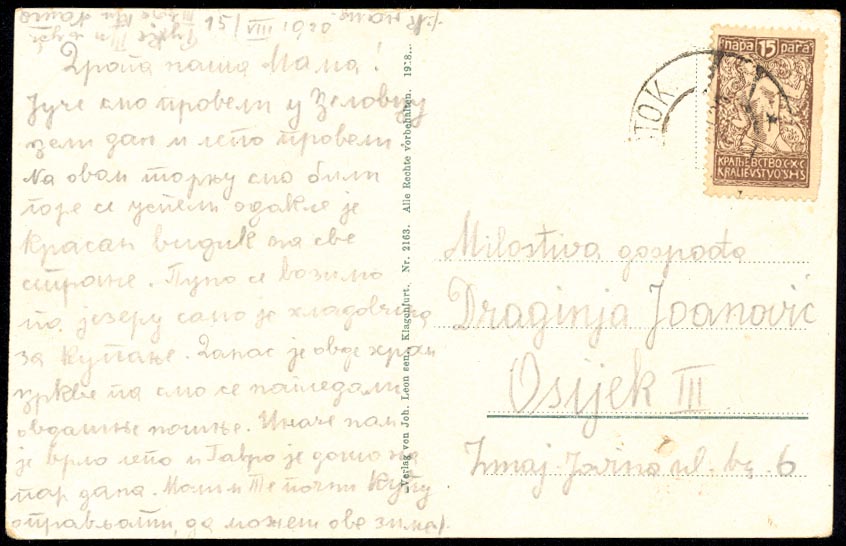 15/VIII 1920
Драга наша Мама!
Јуче смо провели у Зеловцу
цели дан и лепо провели
На овом торњу смо били
горе се успели одакле је
красан видик на све
стране. Пуно се возимо
по језеру само је хладовина
за купање. Данас је овде храм
цркве па смо се нагледали
овдашње ношње. Иначе нам
је врло лепо и Гавро је дошо на
пар дана. Молим Те почни кућу
оправљати, да можеш ове зиме
Verlag von Joh. Leon sen., Klagenfurt. Nr. 2163. Alle Rechte vorbehalten. 1918...
ПОК
пара 15 para
КРАЉЕВСТВО С·Х·С
KRALJEVSTVO SHS
Milostiva gospođa
Draginja Joanović
Osijek III
Zmaj-Jovina ul. br. 6